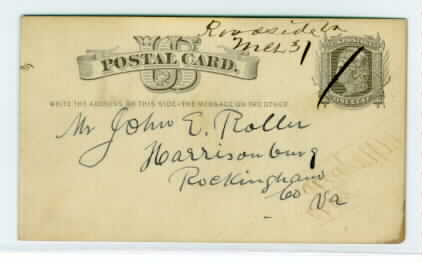 Roadside Va
Mch 31
US
POSTAL CARD.
WRITE THE ADDRESS ON THIS SIDE - THE MESSAGE ON THE OTHER
Mr John E. Roller
Harrisonburg
Rockingham
Co Va